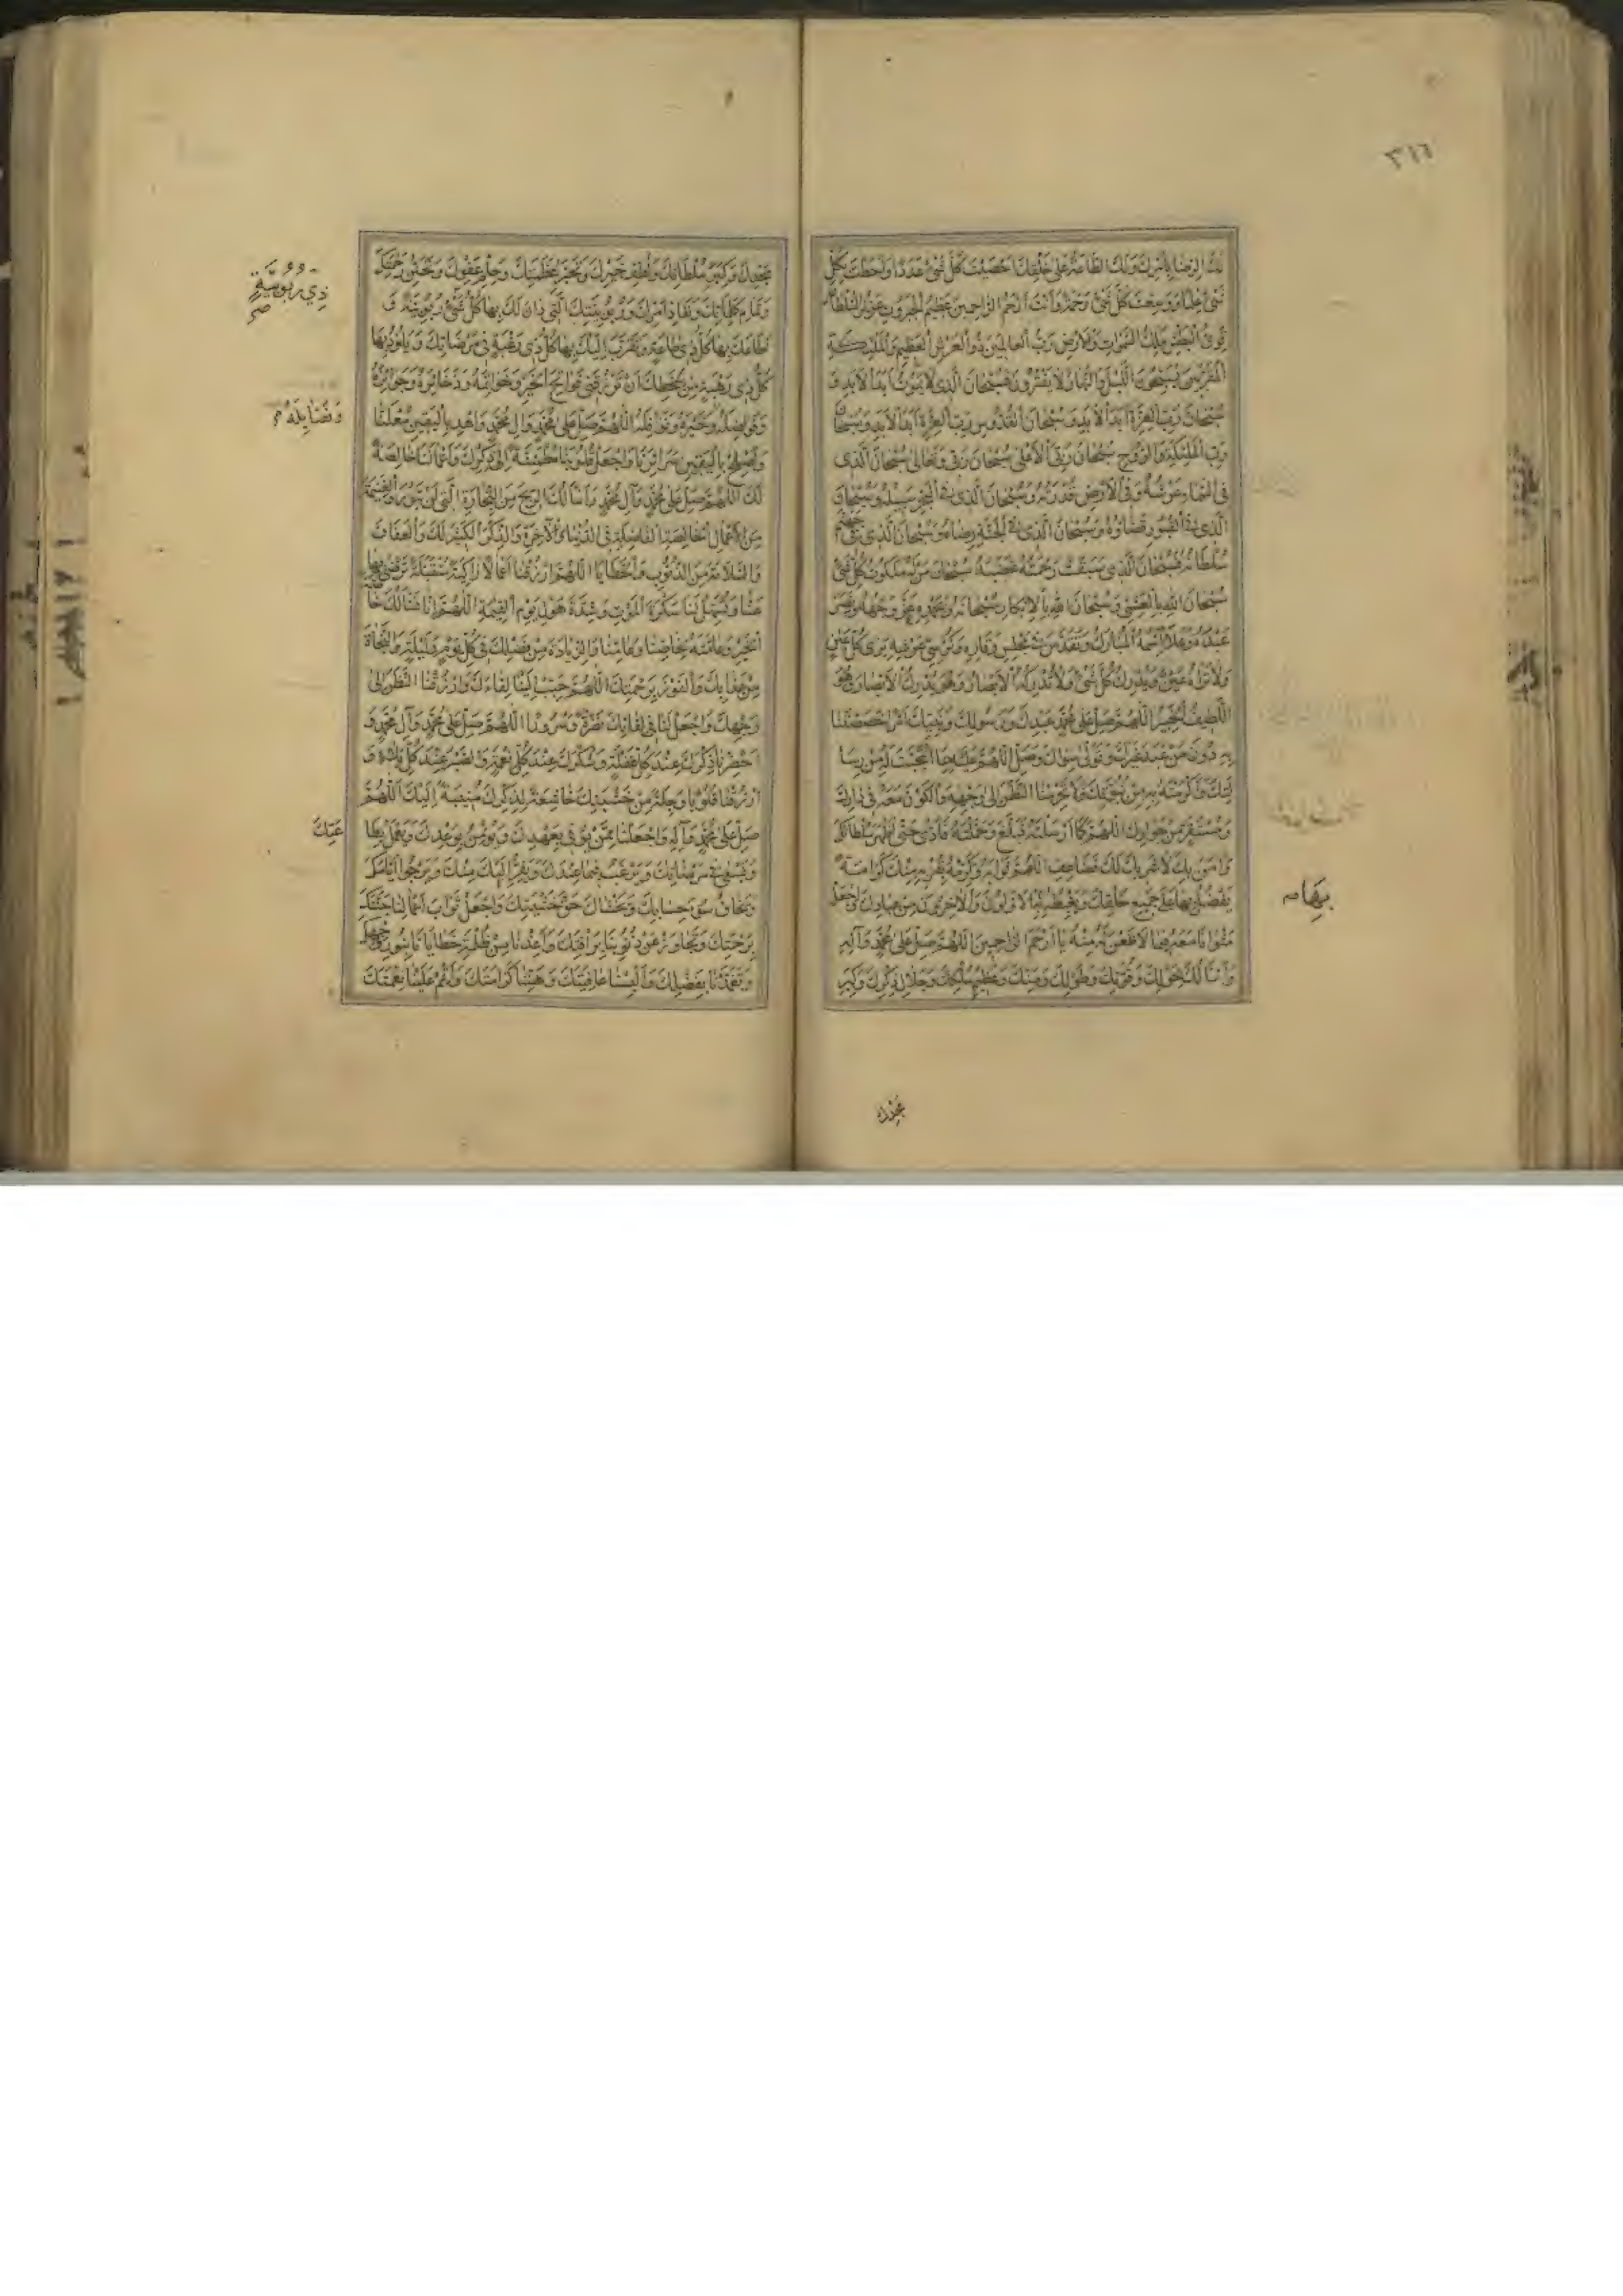 ٣١٦
لك الرضا بأمرك ولك الطاعة على خلقك أحصيت كل شيء عددا وأحطت بكل
شيء علما ووسعت كل شيء رحمة وأنت أرحم الراحمين عظيم الجبروت عزيز السلطان
قوي البطش ملك السموات والأرض رب العالمين ذو العرش العظيم والملئكة
المقربين يسبحون الليل والنهار لا يفترون فسبحان الذي لا يموت أبد الأبد و
سبحان رب العزة أبد الأبد وسبحان القدوس رب العزة أبد الأبد وسبحان
رب الملئكة والروح سبحان ربي الأعلى سبحان ربي وتعالى سبحان الذي
في السماء عرشه وفي الأرض قدرته وسبحان الذي في البحر سبيله وسبحان
الذي في القبور قضاؤه وسبحان الذي في الجنة رضاه وسبحان الذي في جهنم
سلطانه سبحان الذي سبقت رحمته غضبه سبحان من له ملكوت كل شيء
سبحان الله بالعشي وسبحان الله بالإبكار سبحانه وبحمده عز وجهه ونصر
عبده وعلا اسمه المبارك وتقدس في مجلس وقاره وكرسي عرشه يرى كل عين
ولا تراه عين ويدرك كل شيء ولا تدركه الأبصار وهو يدرك الأبصار وهو
اللطيف الخبير اللهم صل على محمد عبدك ورسولك ونبيك أمرا خصصتنا
به دون من عبد غيرك وتولى سواك وصل اللهم عليه بما انتجبت له من رسا
لتك وأكرمته به من نبوتك ولا تحرمنا النظر إلى وجهه والكون معه في دارك
ومستقر من جوارك اللهم كما أرسلته فبلغ وحملته فأدى حتى أظهر سلطانك
وآمن بك لا شريك لك فضاعف اللهم ثوابه وكرمه بقربه منك كرامة
يفضل بها على جميع خلقك ويغبطه بها الأولون والآخرون من عبادك واجعل
مثوانا معه فيما لا ظعن له منه يا أرحم الراحمين اللهم صل على محمد وآله
وأسألك بحولك وقوتك وطولك ومنك وعظيم ملكك وجلال ذكرك وكبر
بهامه
مجدك
مجدك وكبر سلطانك ولطف جبرك وتجبر عظمتك وحلم عفوك وتحنن رحمتك
وتمام كلماتك ونفاذ أمرك وربوبيتك التي دان لك بها كل شيء ربوبية و
أطاعك بها كل ذي طاعة وتقرب إليك بها كل ذي رغبة في مرضاتك ويلوذ بها
كل ذي رهبة من سخطك أن ترزقني فواتح الخير وخواتمه وذخائره وجوائزه
وفواضله وخيره ونوافله اللهم صل على محمد وآل محمد واهد باليقين معلننا
وأصلح باليقين سرائرنا واجعل قلوبنا مطمئنة إلى ذكرك وأعمالنا خالصة
لك اللهم صل على محمد وآل محمد وأسألك الربح من التجارة التي لن تبور والغنيمة
من الأعمال الخالصة الفاضلة في الدنيا والآخرة والذكر الكثير لك والعفاف
والسلامة من الذنوب والخطايا اللهم ارزقنا أعمالا زاكية متقبلة ترضى بها
عنا وتسهل لنا سكرة الموت وشدة هول يوم القيمة اللهم إنا نسألك خا
الخير وعامته لخاصنا وعامنا والزيادة من فضلك في كل يوم وليلة والنجاة
من عذابك والفوز برحمتك اللهم حبب إلينا لقاءك وارزقنا النظر إلى
وجهك واجعل لنا في لقائك نضرة وسرورا اللهم صل على محمد وآل محمد و
أحضرنا ذكرك عند كل غفلة وشكرك عند كل نعمة والصبر عند كل بلاء و
ارزقنا قلوبا وجلة من خشيتك خاشعة لذكرك منيبة إليك اللهم
صل على محمد وآله واجعلنا ممن يوفي بعهدك ويؤمن بوعدك ويعمل بطا
ويسعى في مرضاتك ويرغب فيما عندك ويفر إليك منك ويرجو أيامك
ويخاف سوء حسابك ويخشاك حق خشيتك واجعل ثواب أعمالنا جنتك
برحمتك وتجاوز عن ذنوبنا برأفتك وأعذنا من ظلمة خطايانا بنور وجهك
وتغمدنا بفضلك وألبسنا عافيتك وهنئنا كرامتك وأتمم علينا نعمتك
ذي ربوبية
وفضايله
عتك